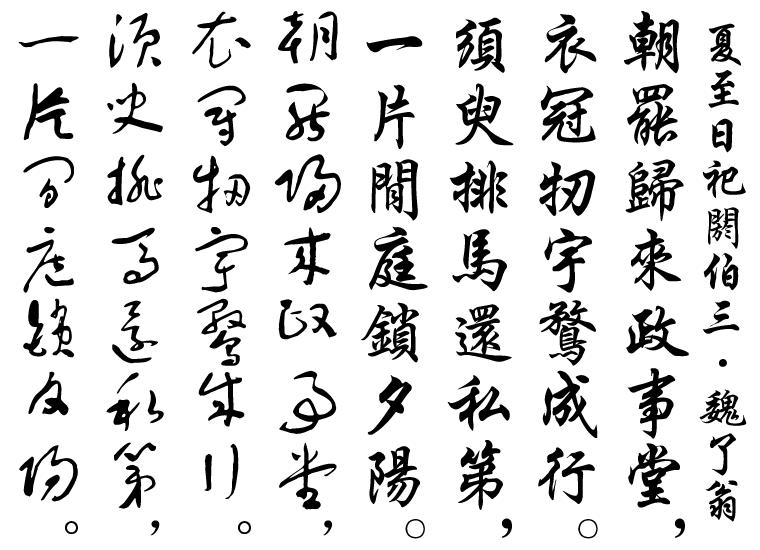 夏至日祀閼伯三·魏了翁
朝罷歸來政事堂，
衣冠牣宇鶩成行。
須臾排馬還私第，
一片閒庭鎖夕陽。
朝罷歸來政事堂，
衣冠牣宇鶩成行。
須臾排馬還私第，
一片閒庭鎖夕陽。